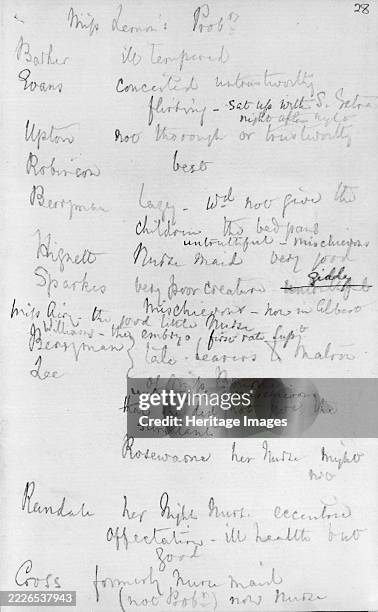 28
Miss Lemon's Probrs
Barker ill tempered
Evans conceited untrustworthy
flirting - Sat up with S.
night after night
Upton not thorough or trustworthy
Robinson best
Berryman lazy - wd not give the
children the bedpans
untruthful - mischievous
Hignett Nurse maid very good
Sparkes very poor creature giddy
mischievous - now in Albert
Miss Airy - the good little Nurse
Williams - the embryo first rate Supt
Berryman tale-bearers to Matron
Lee
of Miss
mischievous
did not like the
Rosewarne her Nurse Night
Randale her Night Nurse eccentric
affectation - ill health but
good
Cross formerly Nurse maid
(not Probr) now Nurse
Credit:
Heritage Images
2226537943